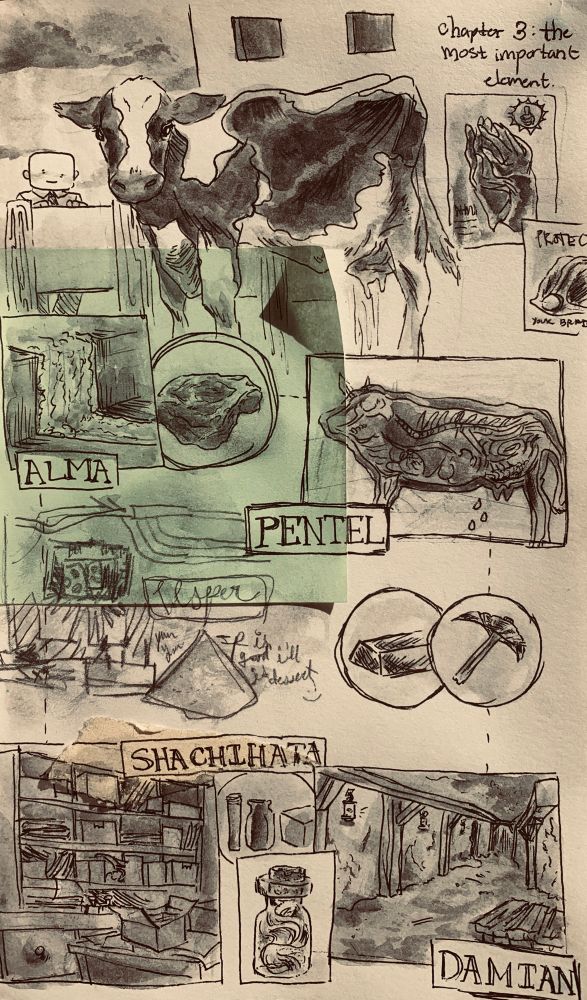 chapter 3: the
most important
element.
PROTEC
YOUR BRA
ALMA
PENTEL
Vesper
yum
yum
if it is
good i'll
dessert
SHACHIHATA
DAMIAN